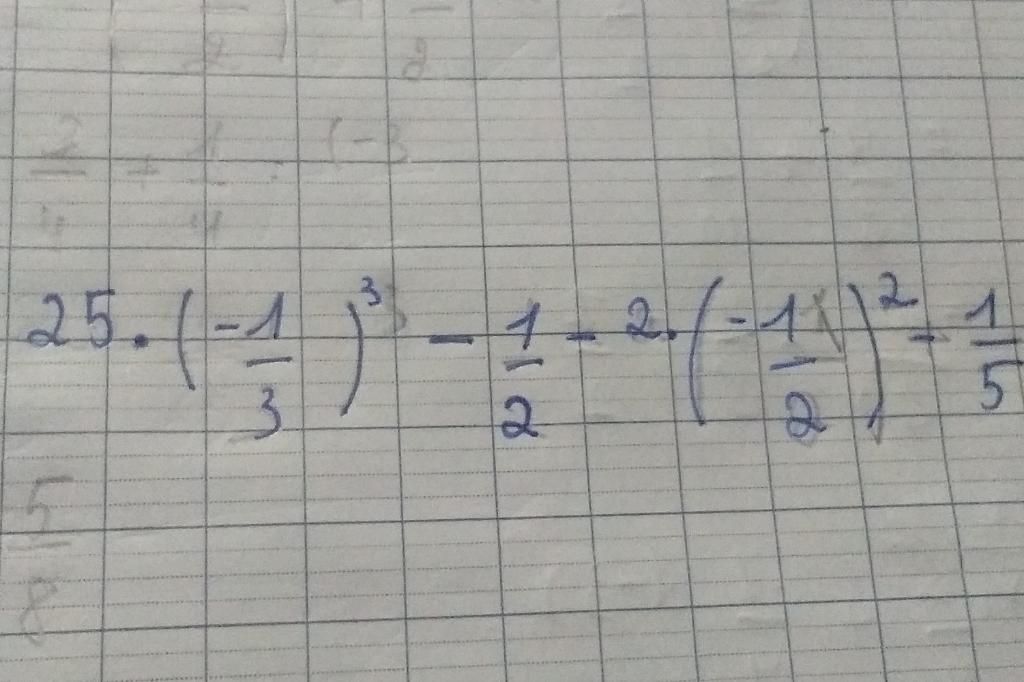 25 . (-1/3)³ - 1/2 - 2 . (-1/2)² - 1/5